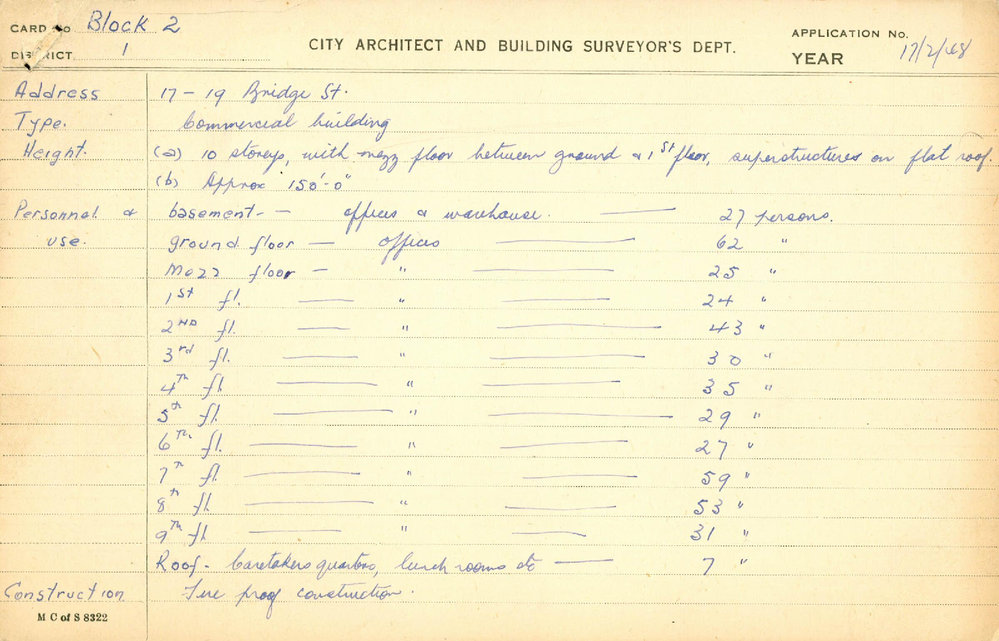 CARD No Block 2
DISTRICT. 1
CITY ARCHITECT AND BUILDING SURVEYOR'S DEPT.
APPLICATION No.
YEAR 17/2/48
Address 17-19 Bridge St.
Type. Commercial building
Height. (a) 10 storeys, with mezz floor between ground & 1st floor, superstructures on flat roof.
(b) Approx 150'-0"
Personnel & basement - — offices & warehouse. — 27 persons.
use. ground floor — offices — 62 "
Mezz floor — " — 25 "
1st fl. — " — 24 "
2ND fl. — " — 43 "
3rd fl. — " — 30 "
4th fl. — " — 35 "
5th fl. — " — 29 "
6th. fl. — " — 27 "
7th fl. — " — 59 "
8th fl. — " — 53 "
9th fl — " — 31 "
Roof - Caretakers quarters, lunch rooms etc — 7 "
Construction Fire proof construction.
M C of S 8322